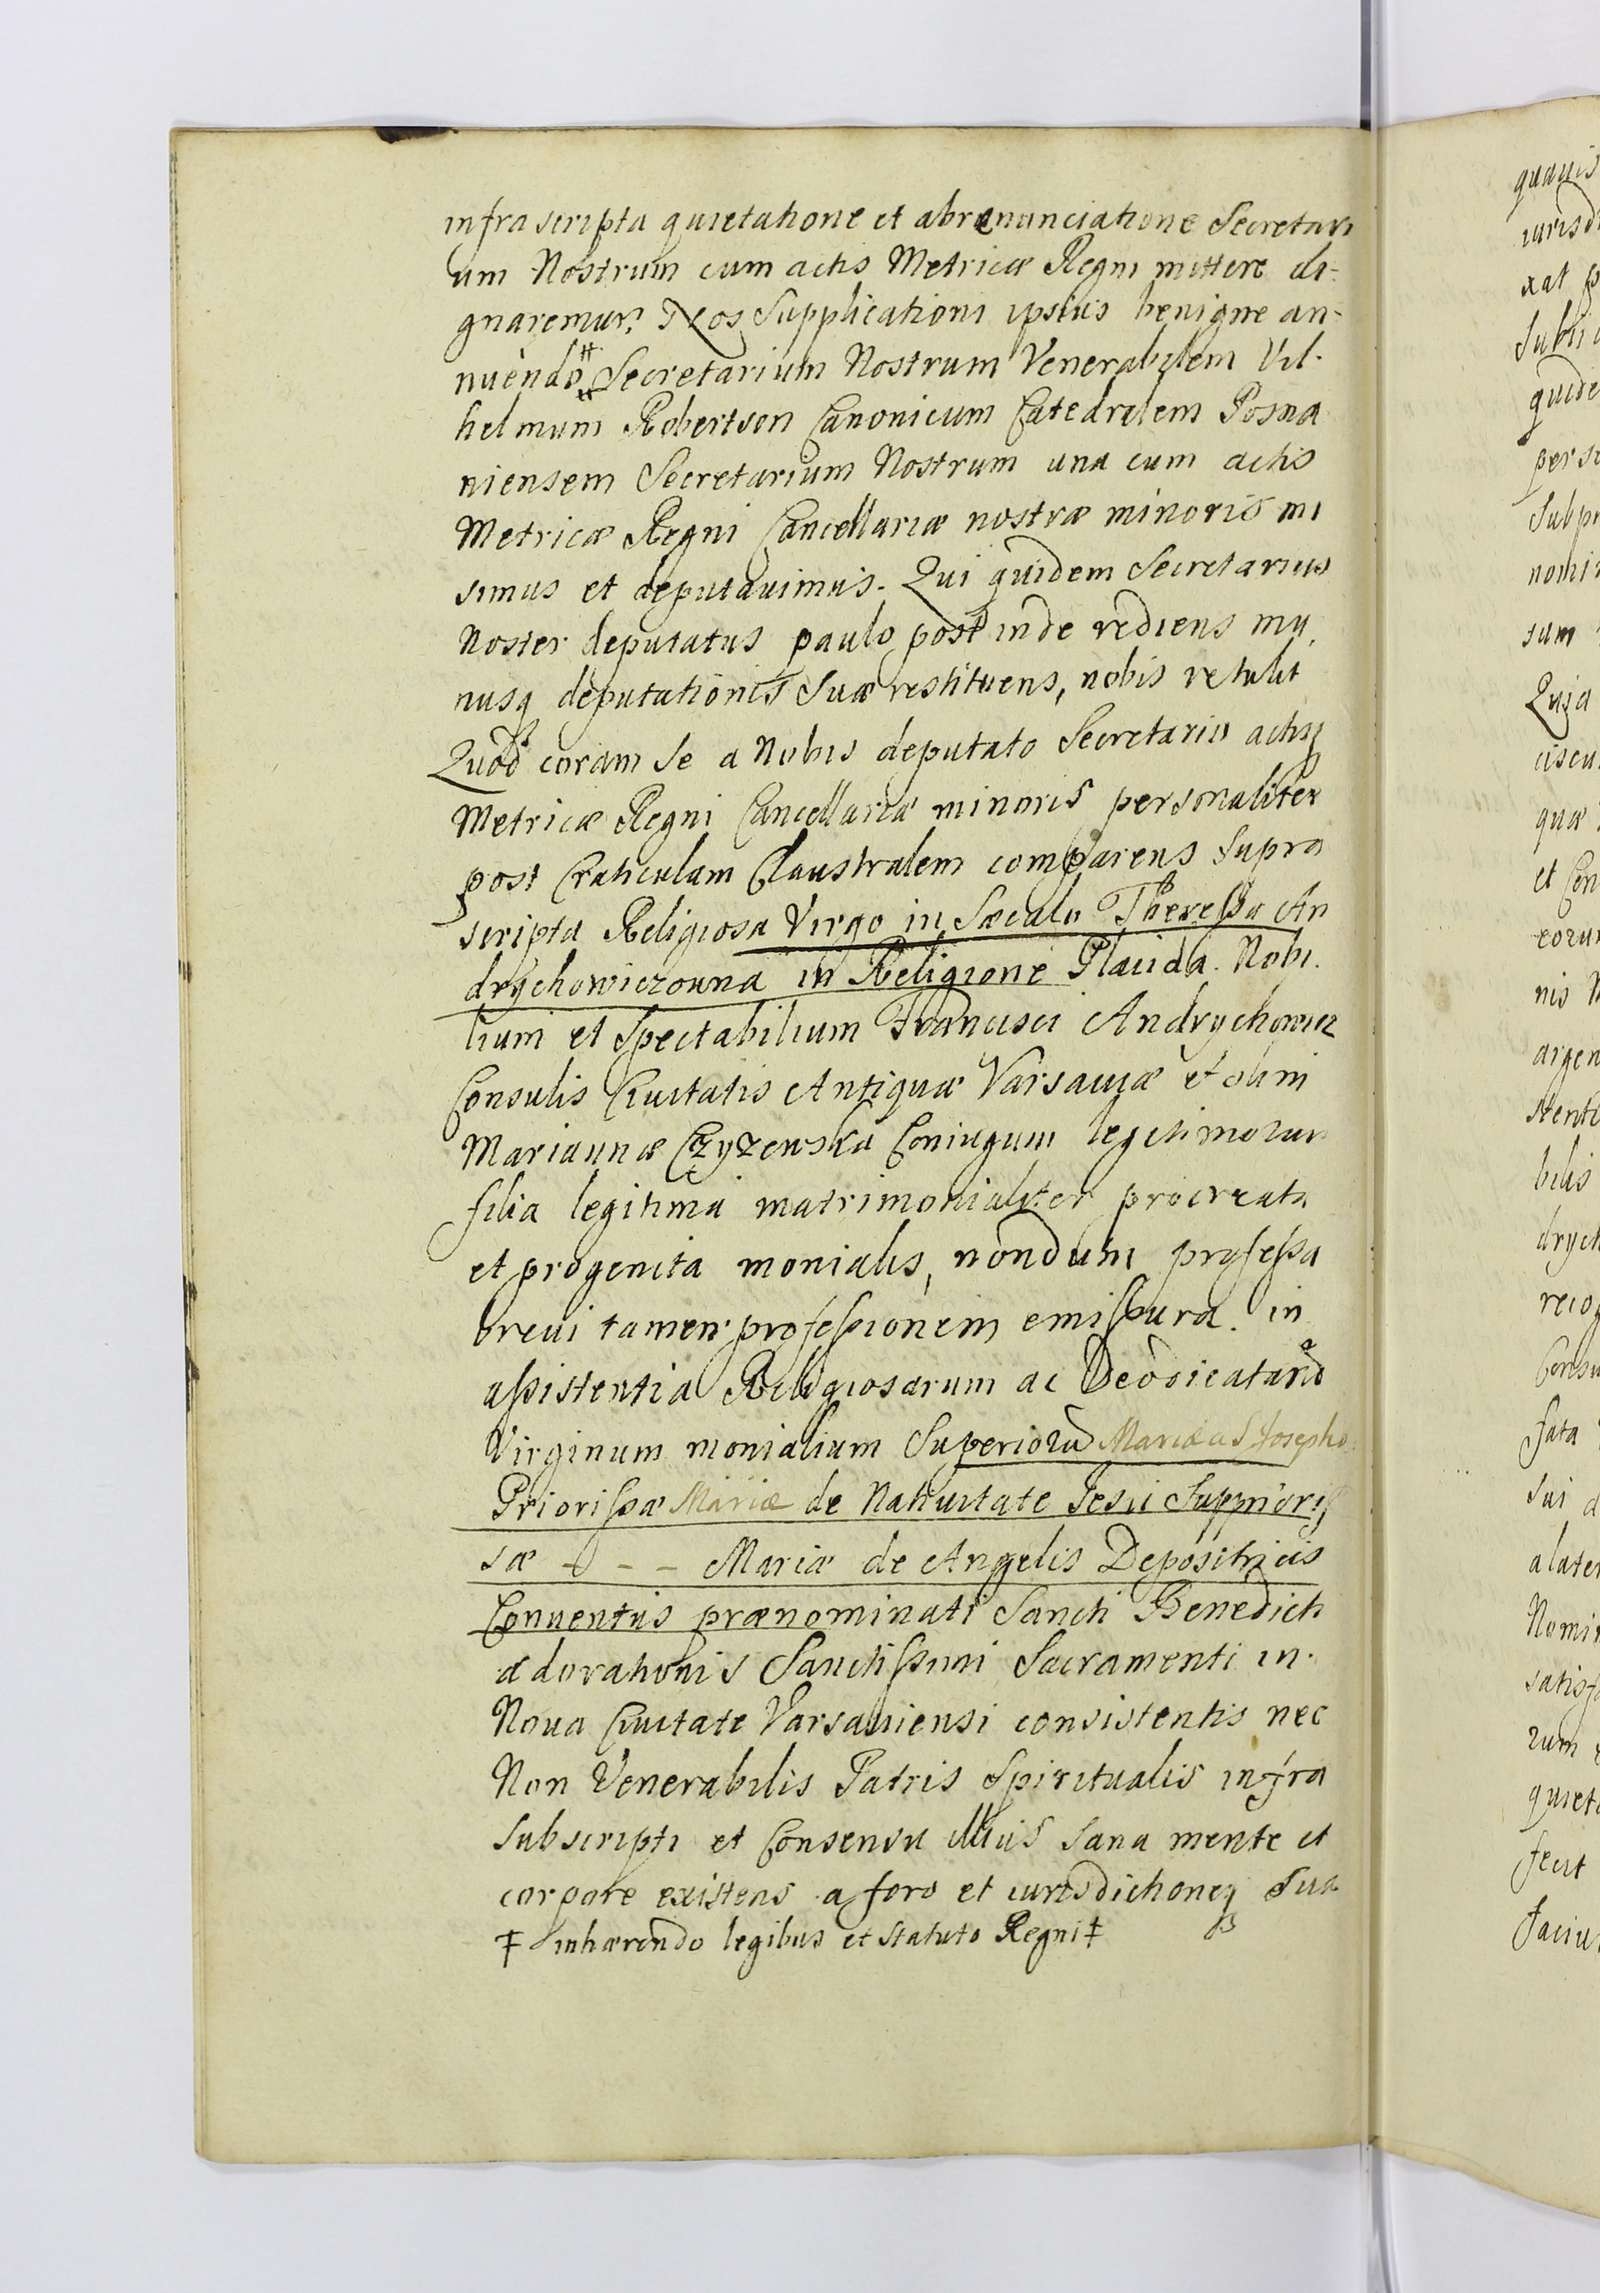 infra scripta quietatione et abrenunciatione Secretari
um Nostrum cum actis Metricæ Regni mittere di-
gnaremur, Nos Supplicationi ipsius benigne an-
nuendo ‡ Secretarium Nostrum Venerabilem Vil-
helmum Robertson Canonicum Catedralem Posna
niensem Secretarium Nostrum una cum actis
Metricæ Regni Cancellariæ nostræ minoris mi
simus et deputauimus. Qui quidem Secretarius
Noster deputatus paulo post inde rediens mu
nusq deputationis suæ restituens, nobis retulit
Quod coram se a Nobis deputato Secretario actisq
Metricæ Regni Cancellariæ minoris personaliter
post Craticulam Claustralem comparens supra
scripta Religiosa Virgo in Sæculo Theressa An
drychowiczouna in Religione Placida. Nobi.
lium et Spectabilium Francisci Andrychowicz
Consulis Ciuitatis Antiquæ Varsauiæ et olim
Mariannæ Czyzewska Coniugum legitimorum
filia legitima matrimonialiter procreata
et progenita monialis, nondum professa
breui tamen professionem emissura. in
assistentia Religiosarum ac Deo dicatarū
Virginum monialium Superiorū Mariæ a S Josepho
Priorissæ Mariæ de Natiuitate Jesu Supprioris
sæ - - - Mariæ de Angelis Depositricis
Conuentus prænominati Sancti Benedicti
adorationis Sanctissimi Sacramenti in
Noua Ciuitate Varsauiensi consistentis nec
Non Venerabilis Patris Spiritualis infra
subscripti et Consensu illius sana mente et
corpore existens a foro et iurisdictioneq sua
‡ inhærendo legibus et statuto Regni ‡